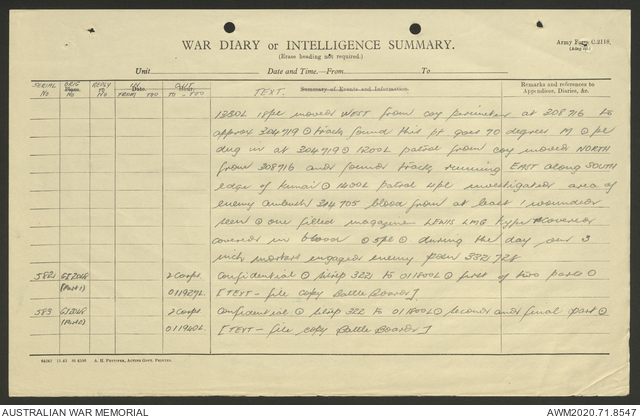 WAR DIARY or INTELLIGENCE SUMMARY.
(Erase heading not required.)
Army Form C.2118.
Unit
Date and Time—From
To
SERIAL No
ORIG No
REPLY TO No
IN
FROM TOO
OUT
TO TOO
TEXT.
Summary of Events and Information.
Remarks and references to Appendices, Diaries, &c.
1330L 18pl moved WEST from coy perimeter at 308716 to
approx 304719 ⊙ track found this pt goes 70 degrees M ⊙ pl
dug in at 304719 ⊙ 1200L patrol from coy moved NORTH
from 308716 and found tracks running EAST along SOUTH
edge of kunai ⊙ 1400L patrol 4pl investigated area of
enemy ambush 344705 blood from at least 1 wounded
seen ⊙ one filled magazine LEWIS LMG type
covered in blood ⊙ ⊙ during the day our 3
inch mortars engaged enemy posn 332728
582
(Part 1)
2 Corps
011927L
Confidential ⊙ sitrep 322 to 011800L ⊙ first of two parts ⊙
[TEXT - file copy Battle Board]
583
(Part 2)
2 Corps
011940L
Confidential ⊙ sitrep 322 to 011800L ⊙ second and final part ⊙
[TEXT - file copy Battle Board]
AUSTRALIAN WAR MEMORIAL
AWM2020.71.8547